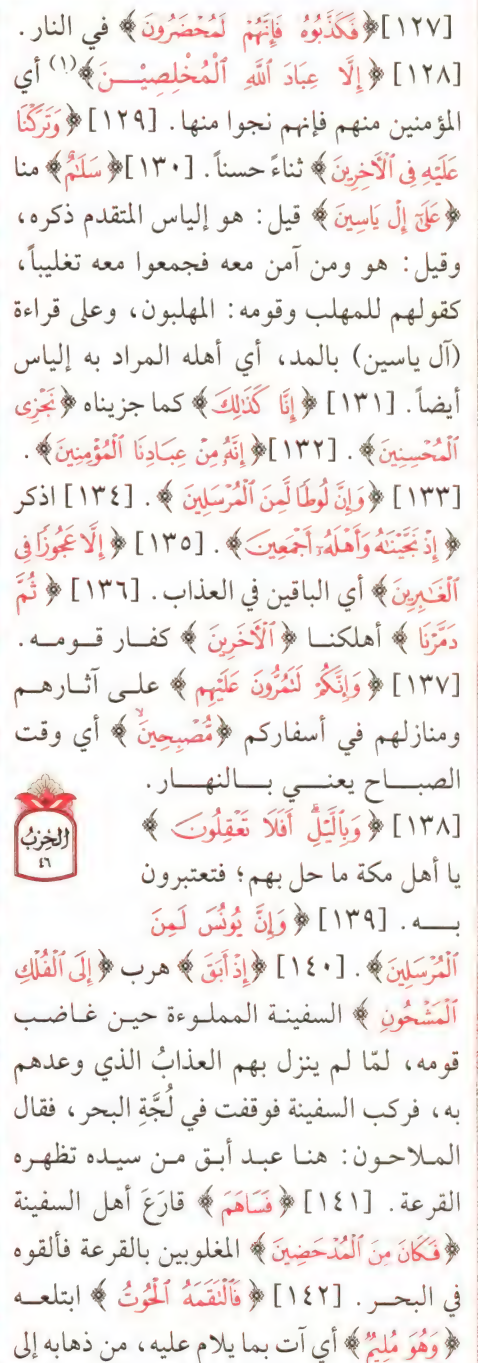 [١٢٧] ﴿فَكَذَّبُوهُ فَإِنَّهُمْ لَمُحْضَرُونَ﴾ في النار.
[١٢٨] ﴿إِلَّا عِبَادَ ٱللَّهِ ٱلْمُخْلَصِينَ﴾(١) أي
المؤمنين منهم فإنهم نجوا منها. [١٢٩] ﴿وَتَرَكْنَا
عَلَيْهِ فِي ٱلْآخِرِينَ﴾ ثناءً حسناً. [١٣٠] ﴿سَلَٰمٌ﴾ منا
﴿عَلَىٰٓ إِلْ يَاسِينَ﴾ قيل: هو إلياس المتقدم ذكره،
وقيل: هو ومن آمن معه فجمعوا معه تغليباً،
كقولهم للمهلب وقومه: المهلبون، وعلى قراءة
(آل ياسين) بالمد، أي أهله المراد به إلياس
أيضاً. [١٣١] ﴿إِنَّا كَذَٰلِكَ﴾ كما جزيناه ﴿نَجْزِى
ٱلْمُحْسِنِينَ﴾. [١٣٢] ﴿إِنَّهُۥ مِنْ عِبَادِنَا ٱلْمُؤْمِنِينَ﴾.
[١٣٣] ﴿وَإِنَّ لُوطًا لَّمِنَ ٱلْمُرْسَلِينَ﴾. [١٣٤] اذكر
﴿إِذْ نَجَّيْنَٰهُ وَأَهْلَهُۥٓ أَجْمَعِينَ﴾. [١٣٥] ﴿إِلَّا عَجُوزًا فِى
ٱلْغَٰبِرِينَ﴾ أي الباقين في العذاب. [١٣٦] ﴿ثُمَّ
دَمَّرْنَا﴾ أهلكنا ﴿ٱلْآخَرِينَ﴾ كفار قومه.
[١٣٧] ﴿وَإِنَّكُمْ لَتَمُرُّونَ عَلَيْهِم﴾ على آثارهم
ومنازلهم في أسفاركم ﴿مُّصْبِحِينَ﴾ أي وقت
الصباح يعني بالنهار.
[١٣٨] ﴿وَبِٱلَّيْلِ أَفَلَا تَعْقِلُونَ﴾
الحِزبُ
٤٦
يا أهل مكة ما حل بهم؛ فتعتبرون
به. [١٣٩] ﴿وَإِنَّ يُونُسَ لَمِنَ
ٱلْمُرْسَلِينَ﴾. [١٤٠] ﴿إِذْ أَبَقَ﴾ هرب ﴿إِلَى ٱلْفُلْكِ
ٱلْمَشْحُونِ﴾ السفينة المملوءة حين غاضب
قومه، لمّا لم ينزل بهم العذابُ الذي وعدهم
به، فركب السفينة فوقفت في لُجَّةِ البحر، فقال
الملاحون: هنا عبد أبق من سيده تظهره
القرعة. [١٤١] ﴿فَسَاهَمَ﴾ قارَعَ أهل السفينة
﴿فَكَانَ مِنَ ٱلْمُدْحَضِينَ﴾ المغلوبين بالقرعة فألقوه
في البحر. [١٤٢] ﴿فَٱلْتَقَمَهُ ٱلْحُوتُ﴾ ابتلعه
﴿وَهُوَ مُلِيمٌ﴾ أي آت بما يلام عليه، من ذهابه إلى